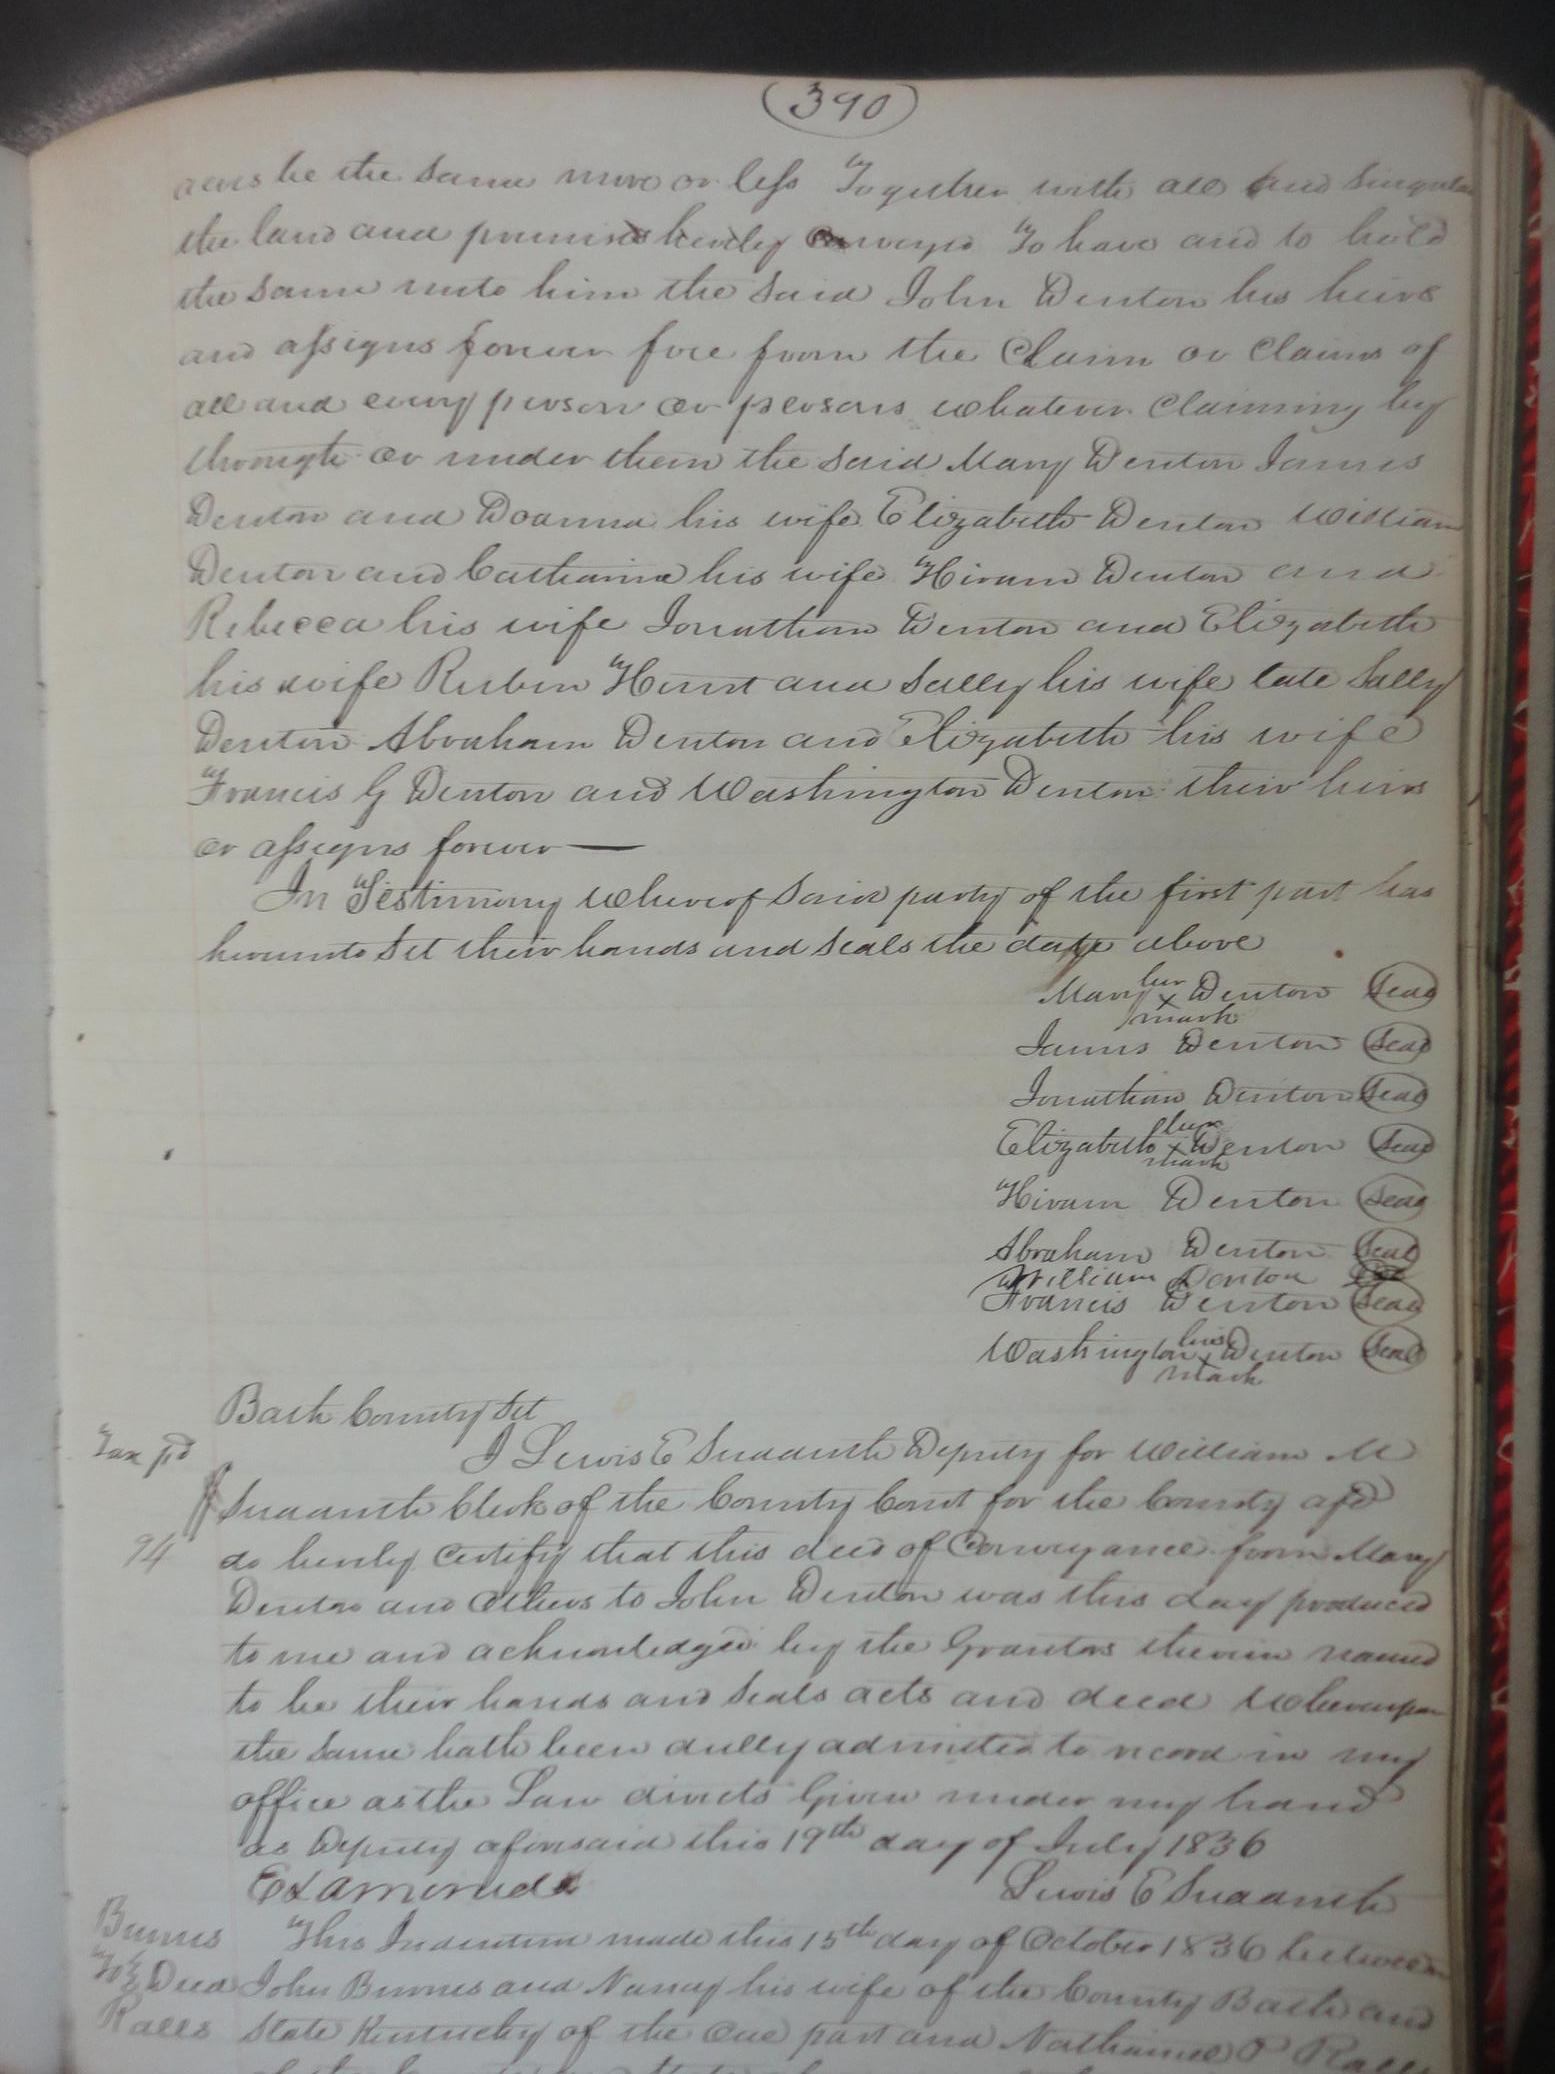 390
acres be the same more or less Together with all and singular
the land and premises hereby Conveyed To have and to hold
the same unto him the said John Denton his heirs
and assigns forever free from the Claim or Claims of
all and every person or persons whatever Claiming by
through or under them the said Mary Denton James
Denton and Doanna his wife Elizabeth Denton William
Denton and Catharine his wife Hiram Denton and
Rebecca his wife Jonathan Denton and Elizabeth
his wife Rubin Hunt and Sally his wife late Sally
Denton Abraham Denton and Elizabeth his wife
Francis G Denton and Washington Denton their heirs
or assigns forever —
In Testimony whereof said party of the first part has
hereunto set their hands and seals the date above
her
Mary x Denton Seal
mark
James Denton Seal
Jonathan Denton Seal
her
Elizabeth x Denton Seal
mark
Hiram Denton Seal
Abraham Denton Seal
William Denton Seal
Francis Denton Seal
his
Washington x Denton Seal
mark
Bath County Sct
Tax pd I Lewis E Sudduth Deputy for William M
Sudduth Clerk of the County Court for the County afd
94 do hereby Certify that this deed of Conveyance from Mary
Denton and Others to John Denton was this day produced
to me and acknowledged by the Grantors therein named
to be their hands and seals acts and deed Whereupon
the same hath been dully admited to record in my
office as the Law directs Given under my hand
as Deputy aforesaid this 19th day of July 1836
Examined Lewis E Sudduth
Burnes This Indenture made this 15th day of October 1836 between
To Deed John Burnes and Nancy his wife of the County Bath and
Ralls State Kentucky of the One part and Nathaniel P Ralls